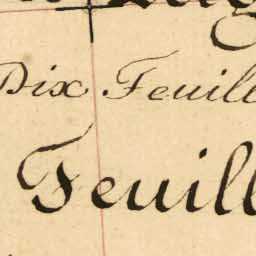 Dix Feuill
Feuill